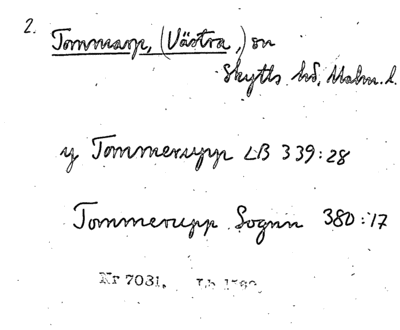 2.
Tommarp, (Västra,) sn
Skytts hd, Malm. l.
y Tommerupp LB 339:28
Tommerupp Sognn 380:17
Nr 7031.